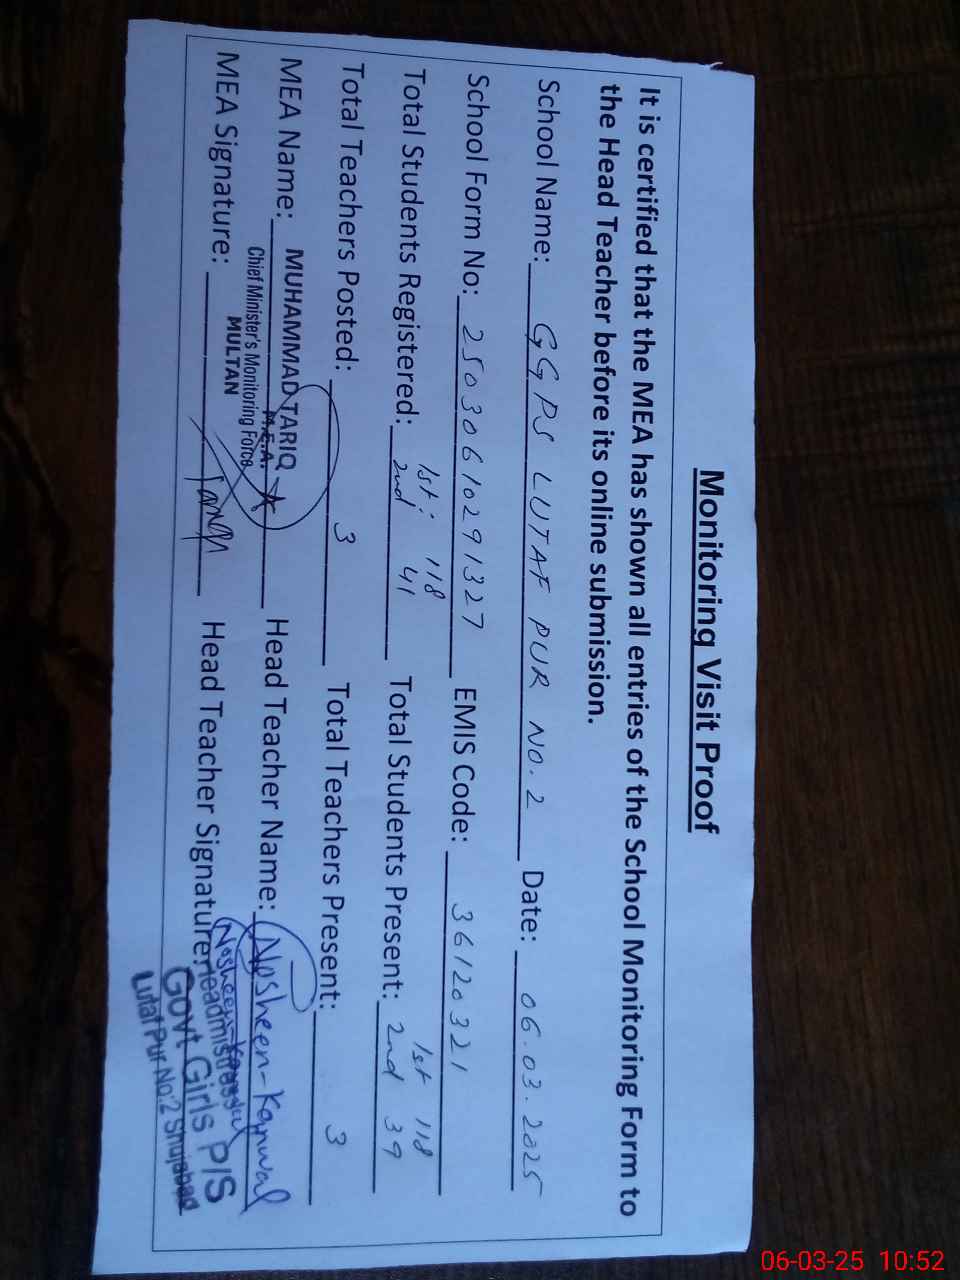 Monitoring Visit Proof
It is certified that the MEA has shown all entries of the School Monitoring Form to
the Head Teacher before its online submission.
School Name: GGPS LUTAF PUR NO. 2 Date: 06.03.2025
School Form No: 25030610291327 EMIS Code: 36120321
Total Students Registered: 1st: 118 Total Students Present: 1st 118
2nd: 41 2nd 39
Total Teachers Posted: 3 Total Teachers Present: 3
MEA Name: MUHAMMAD TARIQ Head Teacher Name: Nosheen-Kanwal
M.E.A.
Chief Minister's Monitoring Force
MULTAN
MEA Signature: Head Teacher Signature: Nosheen
Headmistress
Govt Girls P/S
Lutaf Pur No:2 Shujabad
06-03-25 10:52